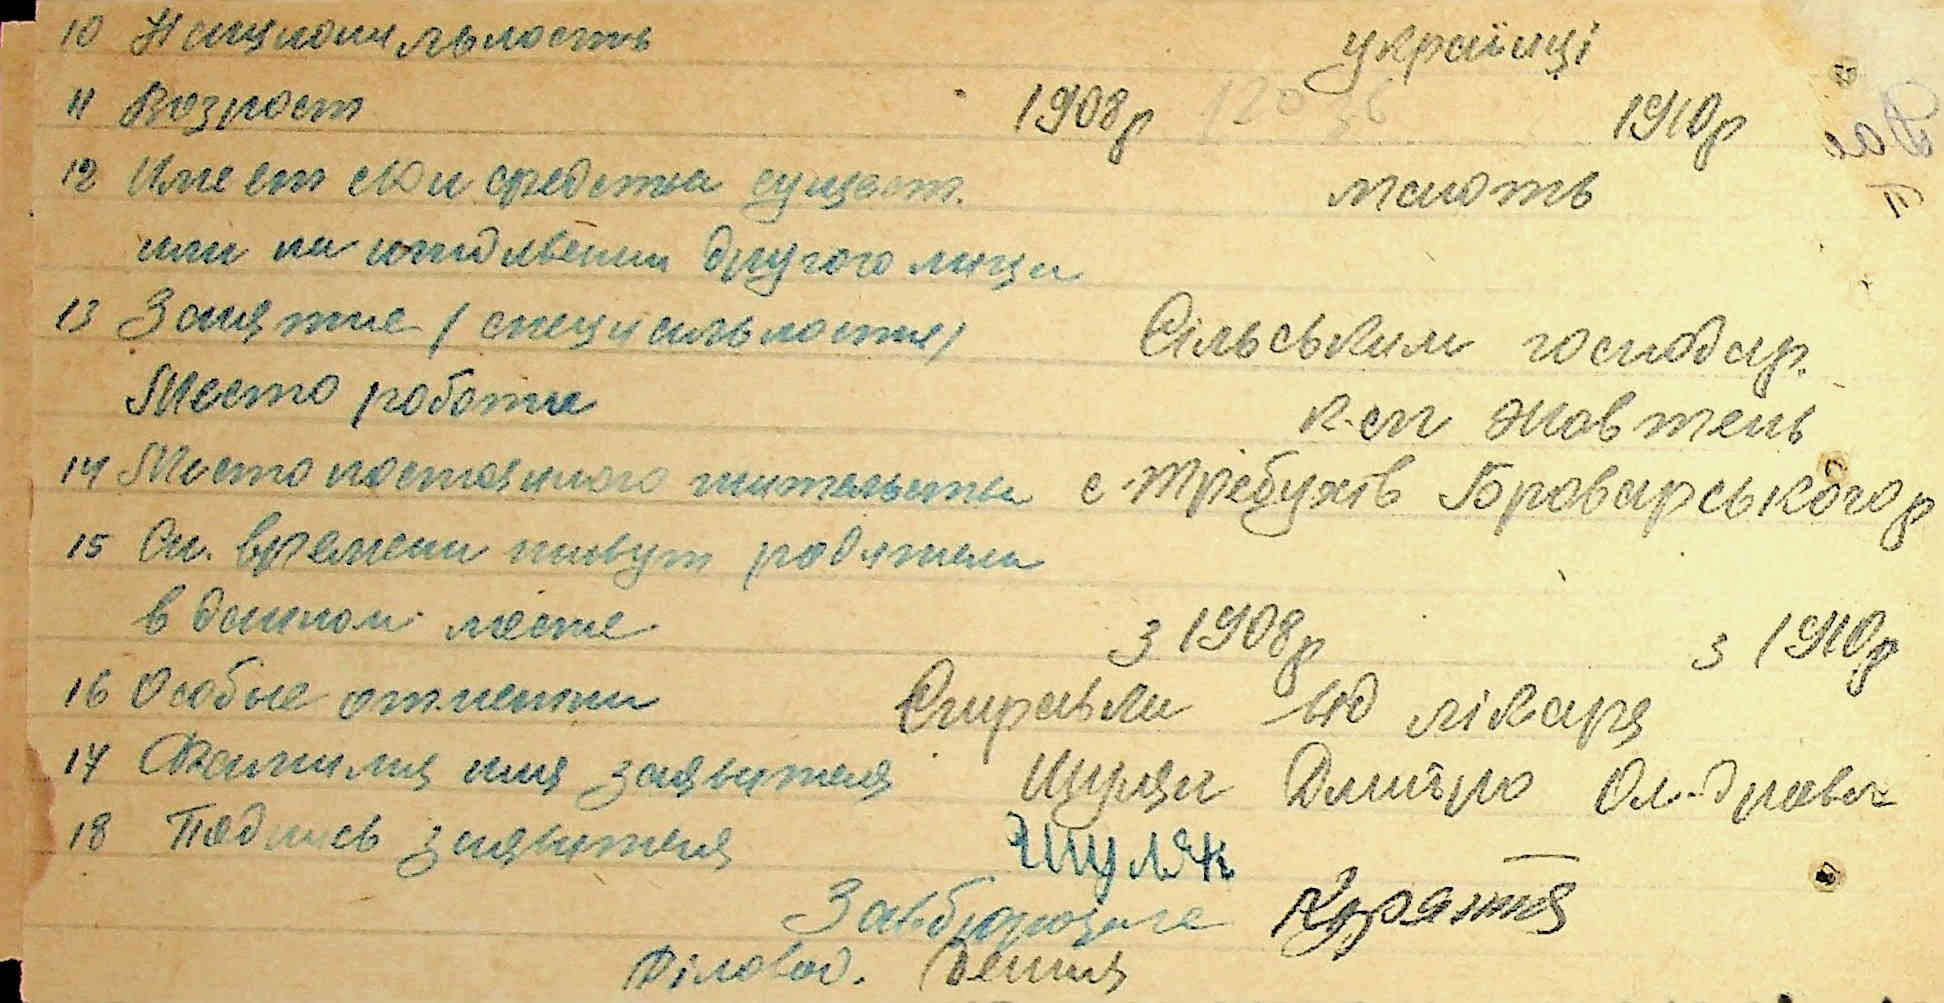 10 Национальность українці
11 Возраст 1908р 1910р
12 Имеет свои средства сущест. мають
или на иждивении другого лица
13 Занятие (специальность) Сільським господар.
Место работы к-сп Жовтень
14 Место постоянного жительства с. Требухів Броварського р
15 Ск. времени живут родители
в данном месте з 1908р з 1910р
16 Особые отметки Справка від лікаря
17 Фамилия имя заявителя Шуляк Дмитро Ол-дрович
18 Подпись заявителя Шуляк
Завбюрозагс
Діловод.